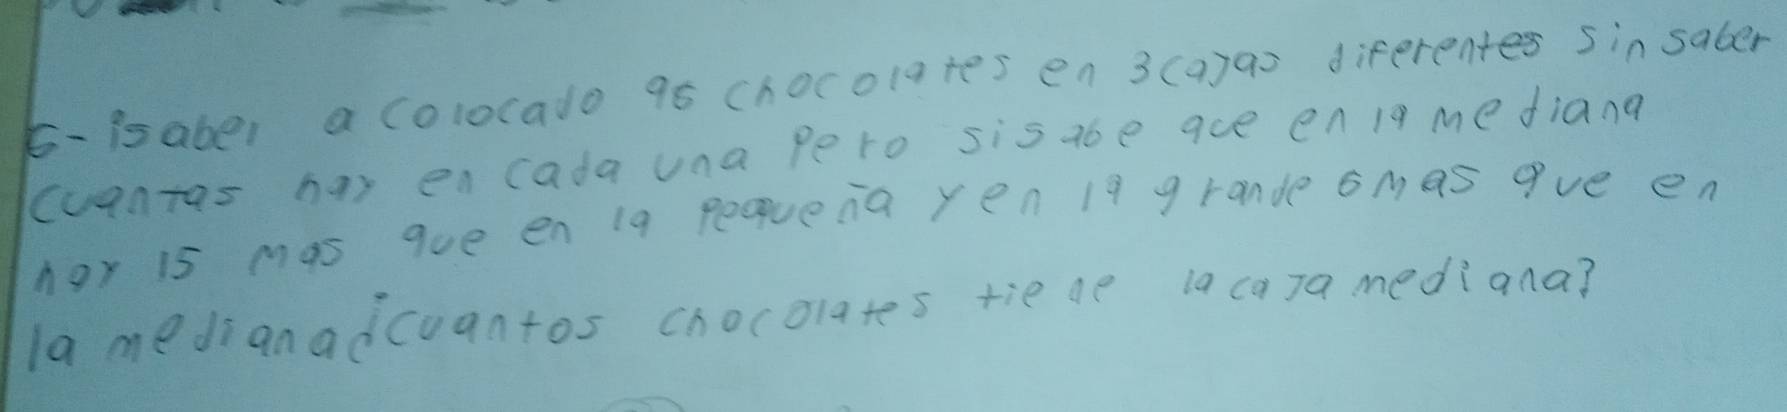 6-isabel a colocado 96 chocolates en 3 cajas diferentes sin saber
cuantas hay en cada una pero si sabe que en la mediana
hay 15 mas que en la pequeña y en la grande 6 mas que en
la mediana¿cuantos chocolates tiene la caja mediana?